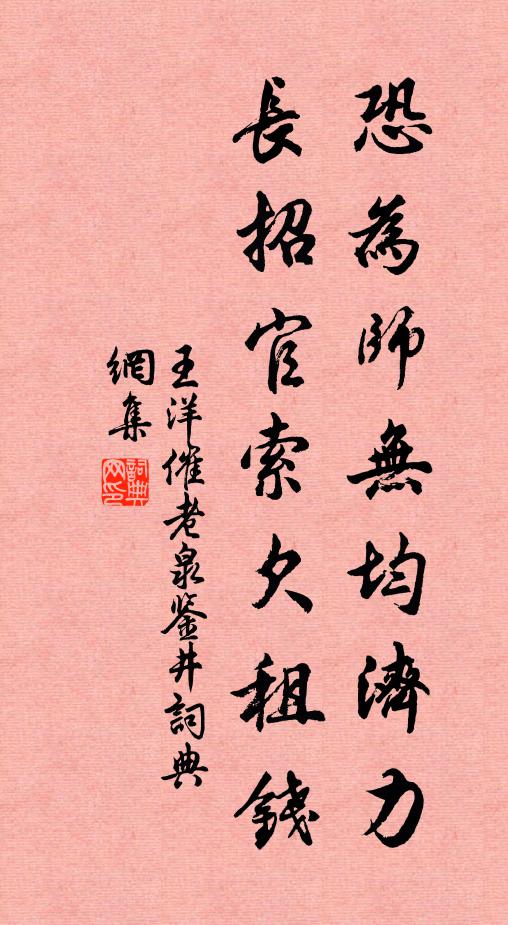 恐為師無均濟力
長招官索欠租錢
王洋催老泉鉴井詞典
網集
詞典
网印